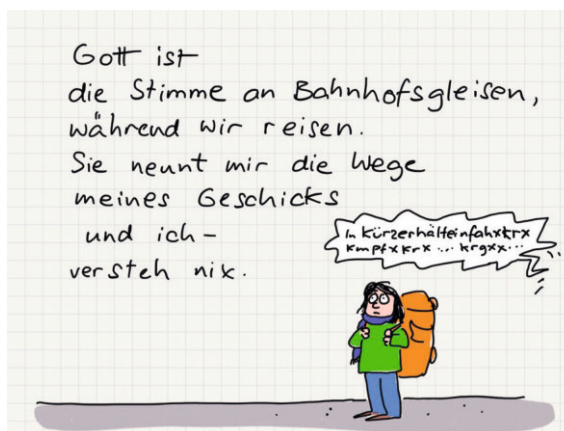 Gott ist
die Stimme an Bahnhofsgleisen,
während wir reisen.
Sie nennt mir die Wege
meines Geschicks
und ich –
versteh nix.
In Kürzerhälteinfahxkrx
kmpfxkrx ... krgxx...